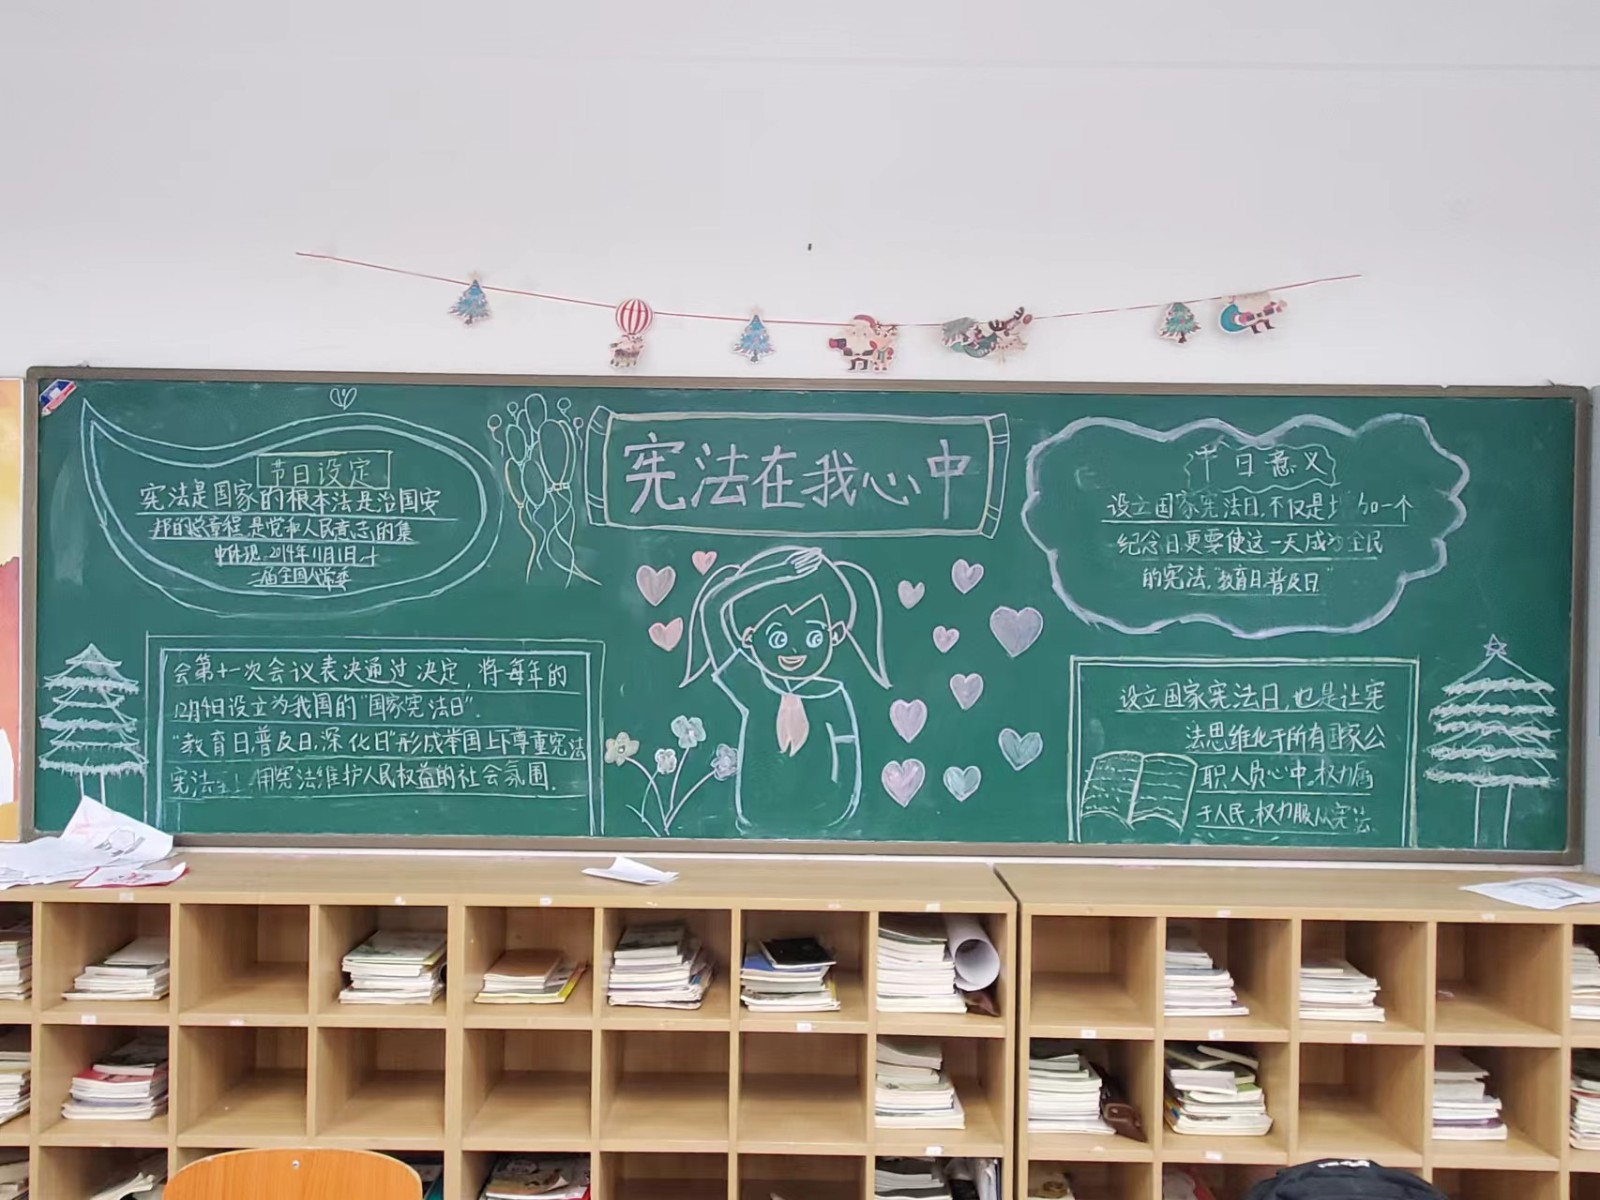 宪法在我心中
节日设定
宪法是国家的根本法是治国安
邦的总章程,是党和人民意志的集
中体现.2014年11月1日,十
二届全国人常委
会第十一次会议表决通过决定,将每年的
12月4日设立为我国的“国家宪法日”.
“教育日,普及日,深化日”形成举国上下尊重宪法
宪法 用宪法维护人民权益的社会氛围.
节日意义
设立国家宪法日,不仅是增加一个
纪念日更要使这一天成为全民
的宪法,“教育日,普及日”
设立国家宪法日,也是让宪
法思维化于所有国家公
职人员心中。权力属
于人民,权力服从宪法